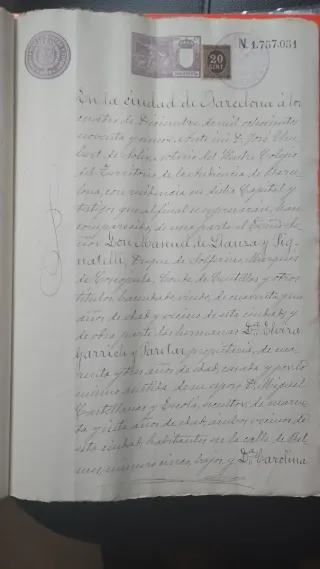 N. 1.757.051
20
CENT.
En la ciudad de Barcelona á los
cuatro de Diciembre de mil ochocientos
noventa y nueve, ante mí D. José
de Solá, notario del Ilustre Colegio
del Territorio de la Audiencia de Barce-
lona, con residencia en dicha Capital y
testigos que al final se expresarán, han
comparecido, de una parte el
Don Manuel de Llanza y Pig-
natelli, Duque de Solferino, Marqués
de Coscojuela, Conde de Centellas y otros
títulos, hacendado, viudo, de cuarenta y un
años de edad y vecino de esta ciudad; y
de otra parte las hermanas D.ª Elvira
Garrich y Parilas, propietaria, de cua-
renta y tres años de edad, casada y por lo
mismo asistida de su esposo D. Miguel
Castellanas y Escolá, escultor, de cuaren-
ta y siete años de edad, ambos vecinos de
esta ciudad, habitantes en la calle de
número cinco, bajos, y D.ª Carolina